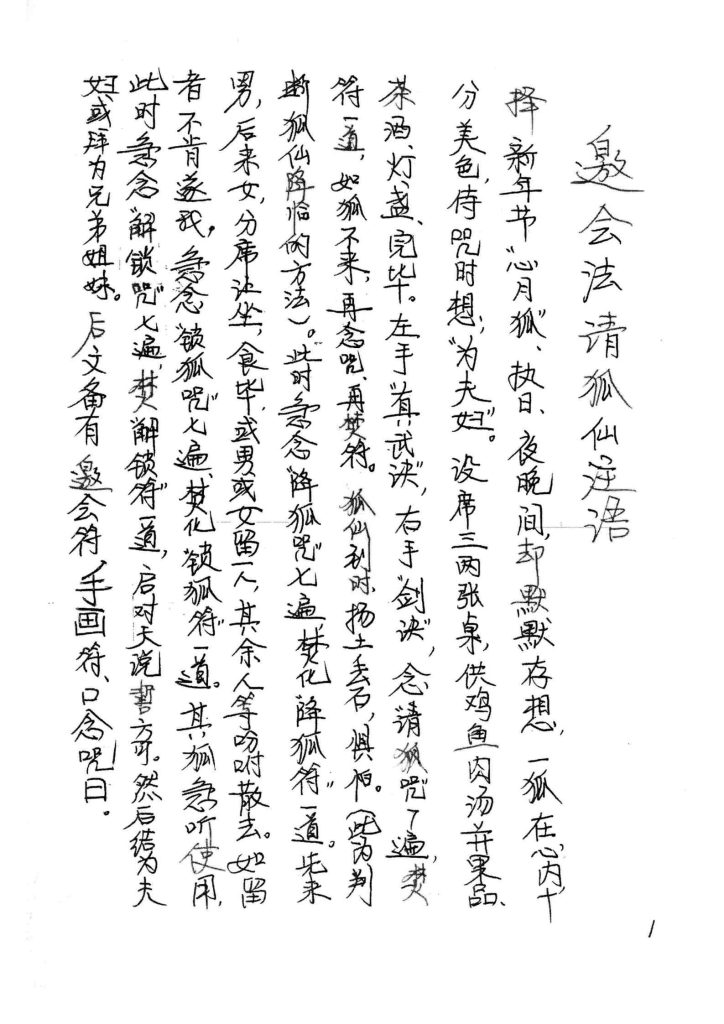 邀会法请狐仙注语
择新年节“心月狐”、执日、夜晚间，却默默存想，一狐在心内，十
分美色，侍咒时想，“为夫妇”。设席三两张桌，供鸡鱼肉汤并果品、
茶酒、灯盏、完毕。左手“真武决”，右手“剑决”，念“请狐咒”了遍，焚
符一道，如狐不来，再念咒、再焚符。狐仙到时、扬土丢石，惧怕。（此为判
断狐仙降临的方法）。此时急念“降狐咒”七遍，焚化“降狐符”一道。先来
男，后来女，分席让坐，食毕，或男或女留一人，其余人等吩咐散去。如留
者不肯遂我。急念“锁狐咒”七遍、焚化“锁狐符”一道。其狐急听使用，
此时急念“解锁咒”七遍，焚“解锁符”一道，启对天说誓方可。然后结为夫
妇或拜为兄弟姐妹。后文备有邀会符，手画符、口念咒曰。
1